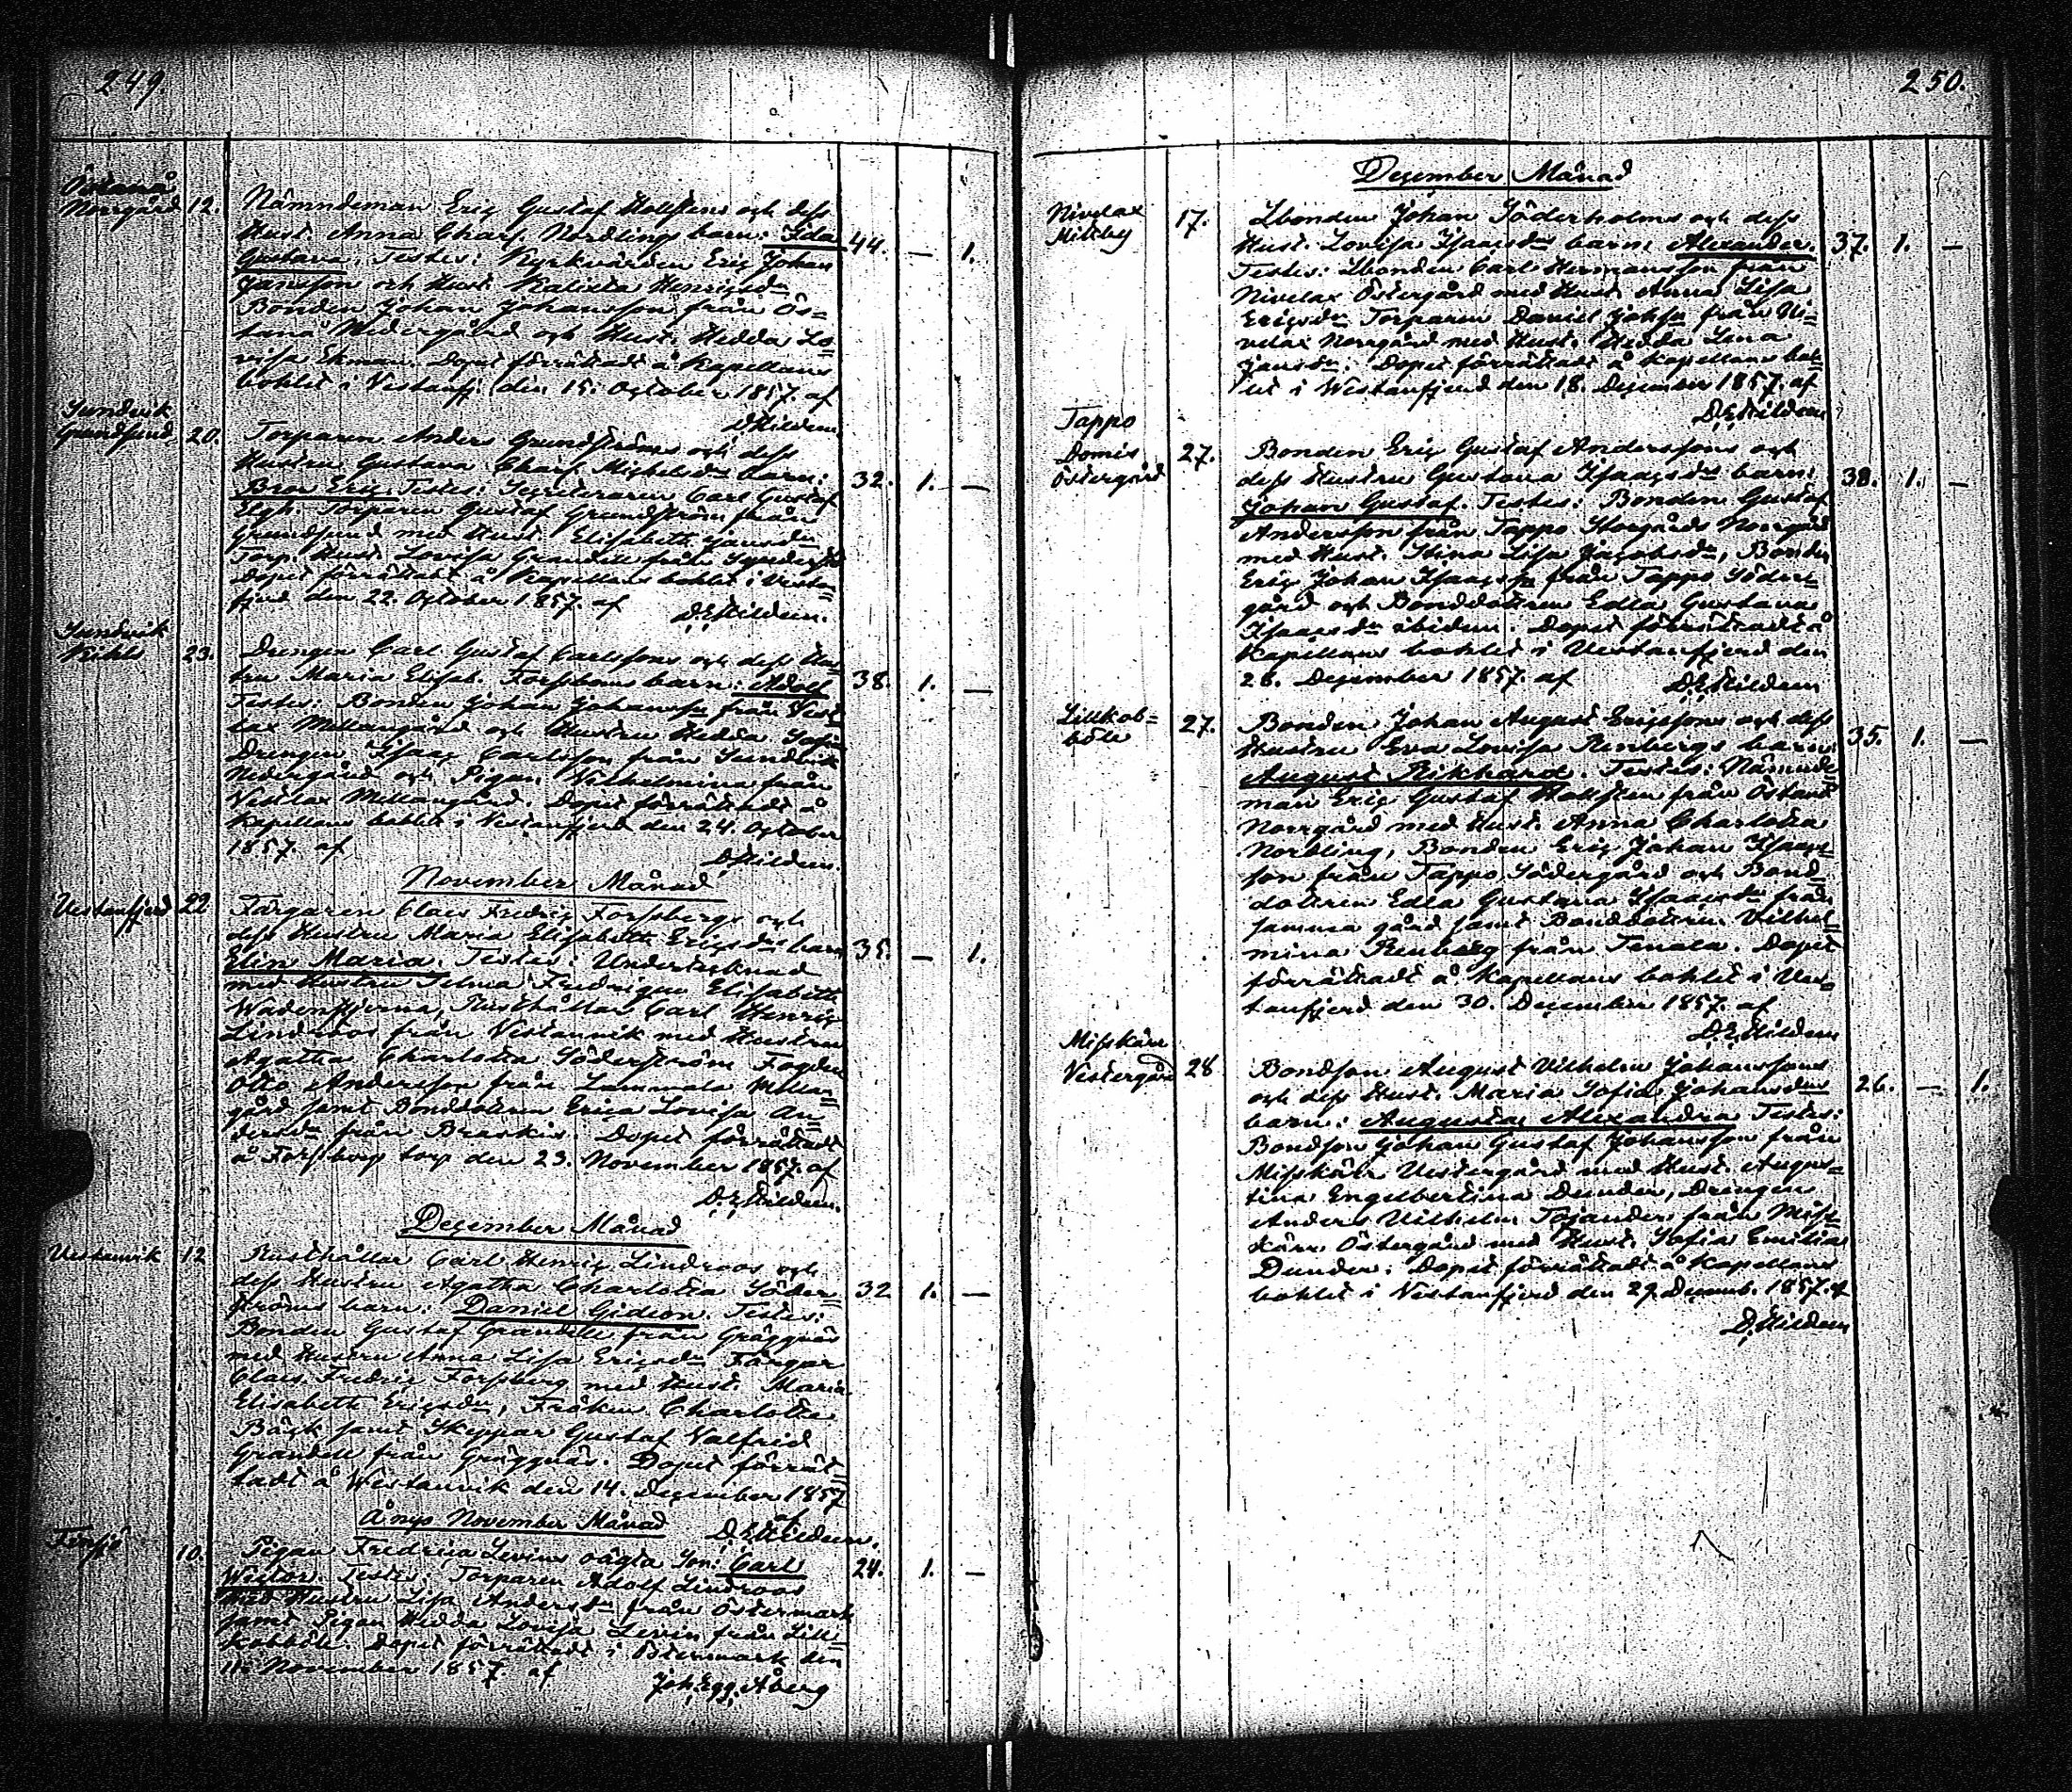 249.
Östanå
Norrgård 12. Nämndeman Eric Gustaf Hollstens och dess
Hust. Anna Charl. Nordlings barn: Ida 44. — 1.
Gustava. Testes: Kyrkvärden Eric Johan
Jansson och Hust. Henricsdr
Bonden Johan Johansson från Ös=
tanå Nedergård och Hust. Hedda Lo=
visa Ekman. Dopet förrättadt å Kapellans
bohlet i Vestanfj. den 15. October 1857. af
D. Hildeen.
Sundvik
Grundsund 20. Torparen Anders Grundströms och dess
Hustru Gustava Charl. Michelsdrs barn: 32. 1. —
Eric. Testes: Carl Gustaf
Torparen Gustaf Grundström från
Grundsund med Hust. Elisabeth Jansdr
Torp. Hust. Lovisa Grandell från
Dopet förrättadt å Kapellans bohlet i Vestan=
fjerd den 22. October 1857. af D. E. Hildeen.
Sundvik
23. Drengen Carl Gustaf Carlssons och dess Hus=
tru Maria Elisab. Forsboms barn: Adolf 38. 1. —
Testes: Bonden Johan Johanss. från Vest=
lax Mellangård och Hustru Hedda Sofia
Drengen Isaac Carlsson från Sundvik
Nedergård och Pigan Vilhelmina från
Vestlax Mellangård. Dopet förrättadt å
Kapellans bohlet i Vestanfjerd den 24. October
1857. af D. Hildeen.
November Månad
Vestanfjerd 22 Färgaren Claes Fredric Forsbergs och
dess Hustru Maria Elisabeth Ericsdrs barn 35. — 1.
Elin Maria. Testes: Undertecknad
med Hustru Selma Fredrique Elisabeth
Wadenstjerna, Rusthållar Carl Henric
Lindroos från Vestanvik med Hustru
Agatha Charlotta Söderström Fogden
Otto Andersson från Lammala Mellan=
gård samt Bonddottren Erica Lovisa An=
dersdr från Braskis. Dopet förrättadt
å Forsbergs torp den 23. November 1857. af
D. E. Hildeen.
December Månad
Vestanvik 12 Rusthållar Carl Henric Lindroos och
dess Hustru Agatha Charlotta Söder= 32 1. —
ströms barn: Daniel Gideon. Testes:
Bonden Gustaf Grandell från Gräggnäs
med Hustru Anna Lisa Ericsdr Färgar
Claes Fredric Forsberg med Hust. Maria
Elisabeth Ericsdr, Fröken Charlotta
Bäck samt Skeppar Gustaf Valfrid
Grandell från Gräggnäs. Dopet förrät=
tadt å Westanvik den 14. December 1857
af
Å nyo November Månad D. E. Hildeen.
10. Pigan Fredrica Levins oägta Son: Carl 24. 1. —
Wictor. Testes: Torparen Adolf Lindroos
med Hustru Lisa Andersdr från Östermark
samt Pigan Hedda Lovisa Levin från Lill=
kobböle. Dopet förrättadt i Östermark den
11. November 1857. af Joh. Egg. Åberg
250.
December Månad
Nivelax
Mellby 17. Lbonden Johan Söderholms och dess
Hust. Lovisa Isaacsdrs barn: Alexander. 37. 1. —
Testes: Lbonden Carl Hermansson från
Nivelax Östergård med Hust. Anna Lisa
Ericsdr Torparen Daniel Johss. från Ni=
velax Norrgård med Hust. Hedda Lena
Jansdr. Dopet förrättadt å Kapellans boh=
let i Westanfjerd den 18. December 1857. af
D. E. Hildeen
Tappo
Domis
Östergård 27. Bonden Eric Gustaf Anderssons och
dess Hustru Gustava Isaacsdrs barn: 38. 1. —
Johan Gustaf. Testes: Bonden Gustaf
Andersson från Tappo Storgårds Norrgård
med Hust. Stina Lisa Jacobsdr, Bonden
Eric Johan Isaacss. från Tappo Söder=
gård och Bonddottren Edla Gustava
Isaacsdr ibidem. Dopet förrättadt å
Kapellans bohlet i Vestanfjerd den
28. December 1857. af D. E. Hildeen
Lillkob=
böle 27. Bonden Johan August Ericssons och dess
Hustru Eva Lovisa Renbergs barn: 35. 1. —
August Rikhard. Testes: Nämnde=
man Eric Gustaf Hollsten från Östanå
Norrgård med Hust. Anna Charlotta
Nordling, Bonden Eric Johan Isaacs=
son från Tappo Södergård och Bond=
dottren Edla Gustava Isaacsdr från
samma gård samt Bonddottren Vilhel=
mina Renberg från Tenala. Dopet
förrättadt å Kapellans bohlet i Ves=
tanfjerd den 30. December 1857. af
D. E. Hildeen
Misskärr
Vestergård 28 Bondson August Vilhelm Johanssons
och dess Hust. Maria Sofia Johansdrs 26. — 1.
barn: Augusta Alexandra Testes:
Bondson Johan Gustaf Johansson från
Misskärr Vestergård med Hust. Augus=
tina Engelbertina Dunder, Drengen
Anders Vilhelm Tojander från Miss=
kärr Östergård med Hust. Sofia Emilia
Dunder. Dopet förrättadt å Kapellans
bohlet i Vestanfjerd den 29. Decemb. 1857. af
D. Hildeen